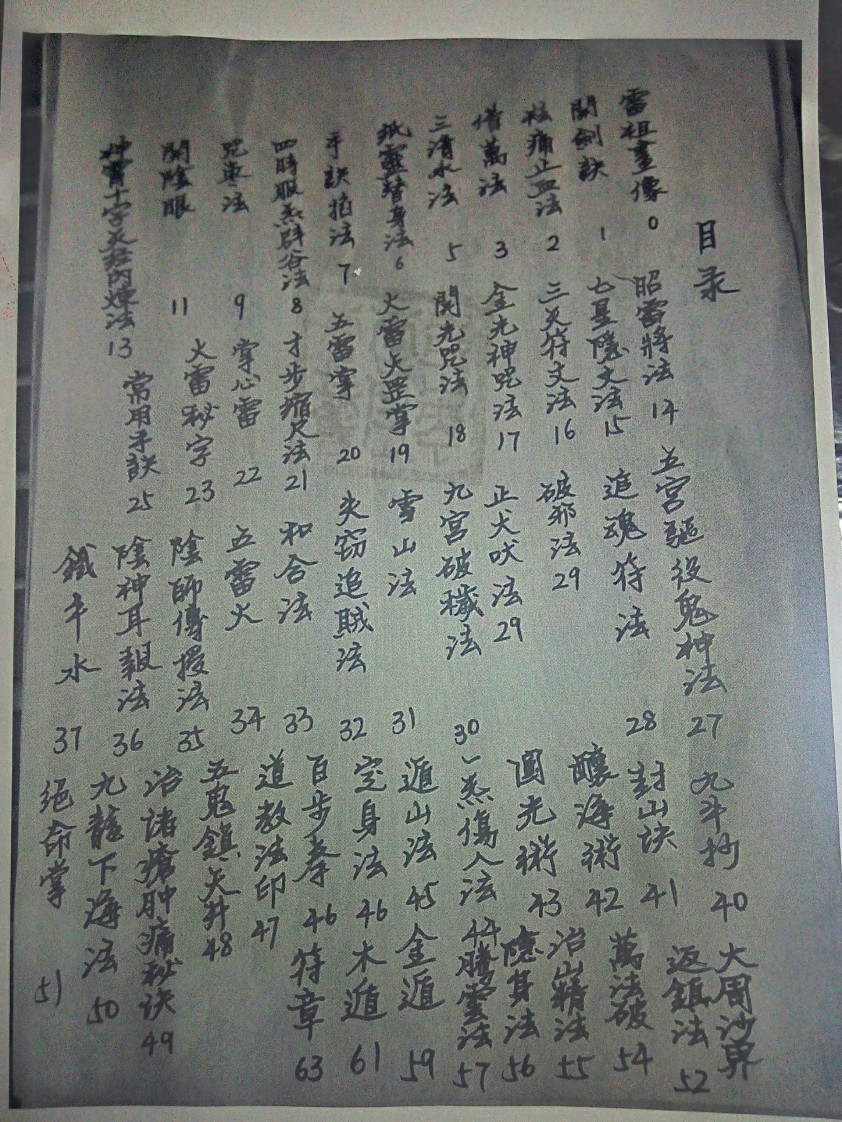 目录
雷祖畫像 0
開劍訣 1
祛痛止血法 2
借萬法 3
三清水法 5
紙靈替身法 6
手訣掐法 7
四時服炁辟谷法 8
咒棗法 9
開陰眼 11
神霄十字天經內煉法 13
昭雷將法 14
七星隱文法 15
三天符文法 16
金光神咒法 17
開光咒法 18
火雷天罡掌 19
五雷掌 20
才步縮尺法 21
掌心雷 22
火雷秘字 23
常用手訣 25
五宮驅役鬼神法 27
追魂符法 28
破邪法 29
正犬吠法 29
九宮破穢法 30
雪山法 31
失窃追賊法 32
和合法 33
五雷火 34
陰師傳授法 35
陰神耳報法 36
鐵牛水 37
九牛抄 40
封山诀 41
釀海術 42
圓光術 43
一炁傷人法 44
遁山法 45
定身法 46
百步拳 46
道教法印 47
五鬼鎮天井 48
治諸瘡肿痛秘诀 49
九龍下海法 50
絕命掌 51
大周沙界
返鎮法 52
萬法破 54
治山精法 55
隱身法 56
騰雲法 57
金遁 59
木遁 61
符章 63